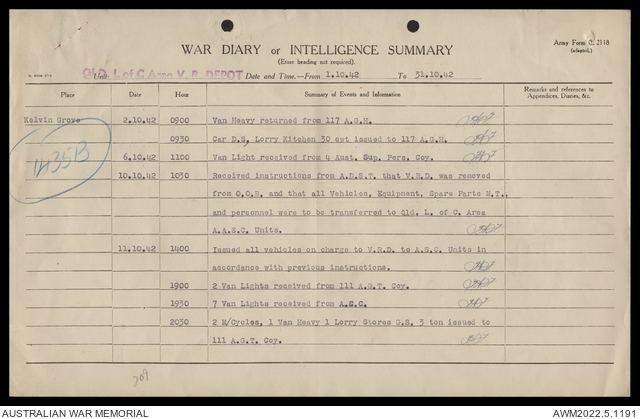 Army Form C. 2118
(adapted.)
WAR DIARY or INTELLIGENCE SUMMARY
(Erase heading not required).
Unit QLD. L of C Area V. R. DEPOT Date and Time.—From 1.10.42 To 31.10.42
Place Date Hour Summary of Events and Information Remarks and references to Appendices, Diaries, &c.
Kelvin Grove 2.10.42 0900 Van Heavy returned from 117 A.G.H.
0930 Car D.S, Lorry Kitchen 30 cwt issued to 117 A.G.H.
6.10.42 1100 Van Light received from 4 Aust. Sup. Pers. Coy.
1435B
10.10.42 1030 Received instructions from A.D.S.T. that V.R.D. was removed
from O.O.B. and that all Vehicles, Equipment, Spare Parts M.T.,
and personnel were to be transferred to Qld. L. of C. Area
A.A.S.C. Units.
11.10.42 1400 Issued all vehicles on charge to V.R.D. to A.S.C. Units in
accordance with previous instructions.
1900 2 Van Lights received from 111 A.G.T. Coy.
1930 7 Van Lights received from A.S.C.
2030 2 M/Cycles, 1 Van Heavy 1 Lorry Stores G.S. 3 ton issued to
111 A.G.T. Coy.
209
AUSTRALIAN WAR MEMORIAL AWM2022.5.1191